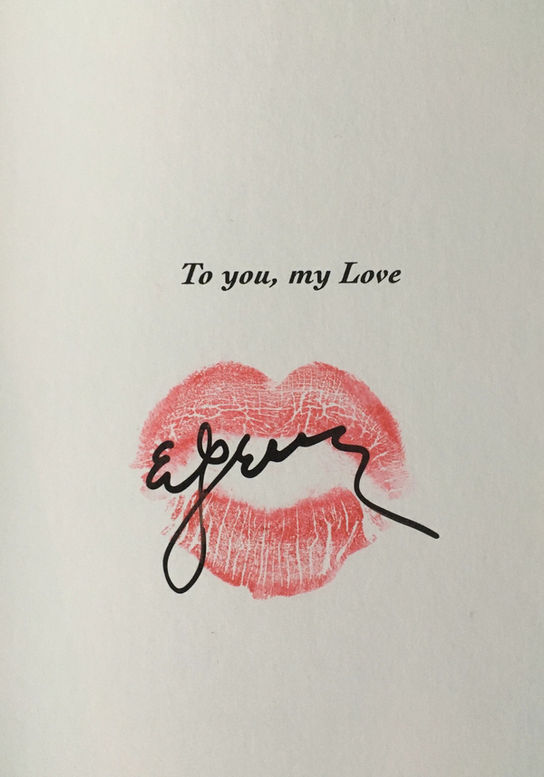 To you, my Love